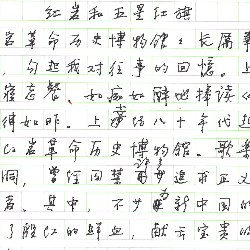 红岩和五星红旗
岩革命历史博物馆之长厉华
，勾起我对往事的回忆。上
寝忘餐、如痴如醉地捧读《
绅如昨。上世纪八十年代起
红岩革命历史博物馆。歌乐
洞，曾经囚禁追求正义
者。其中，不少为新中国的
了殷红的鲜血，献出宝贵的